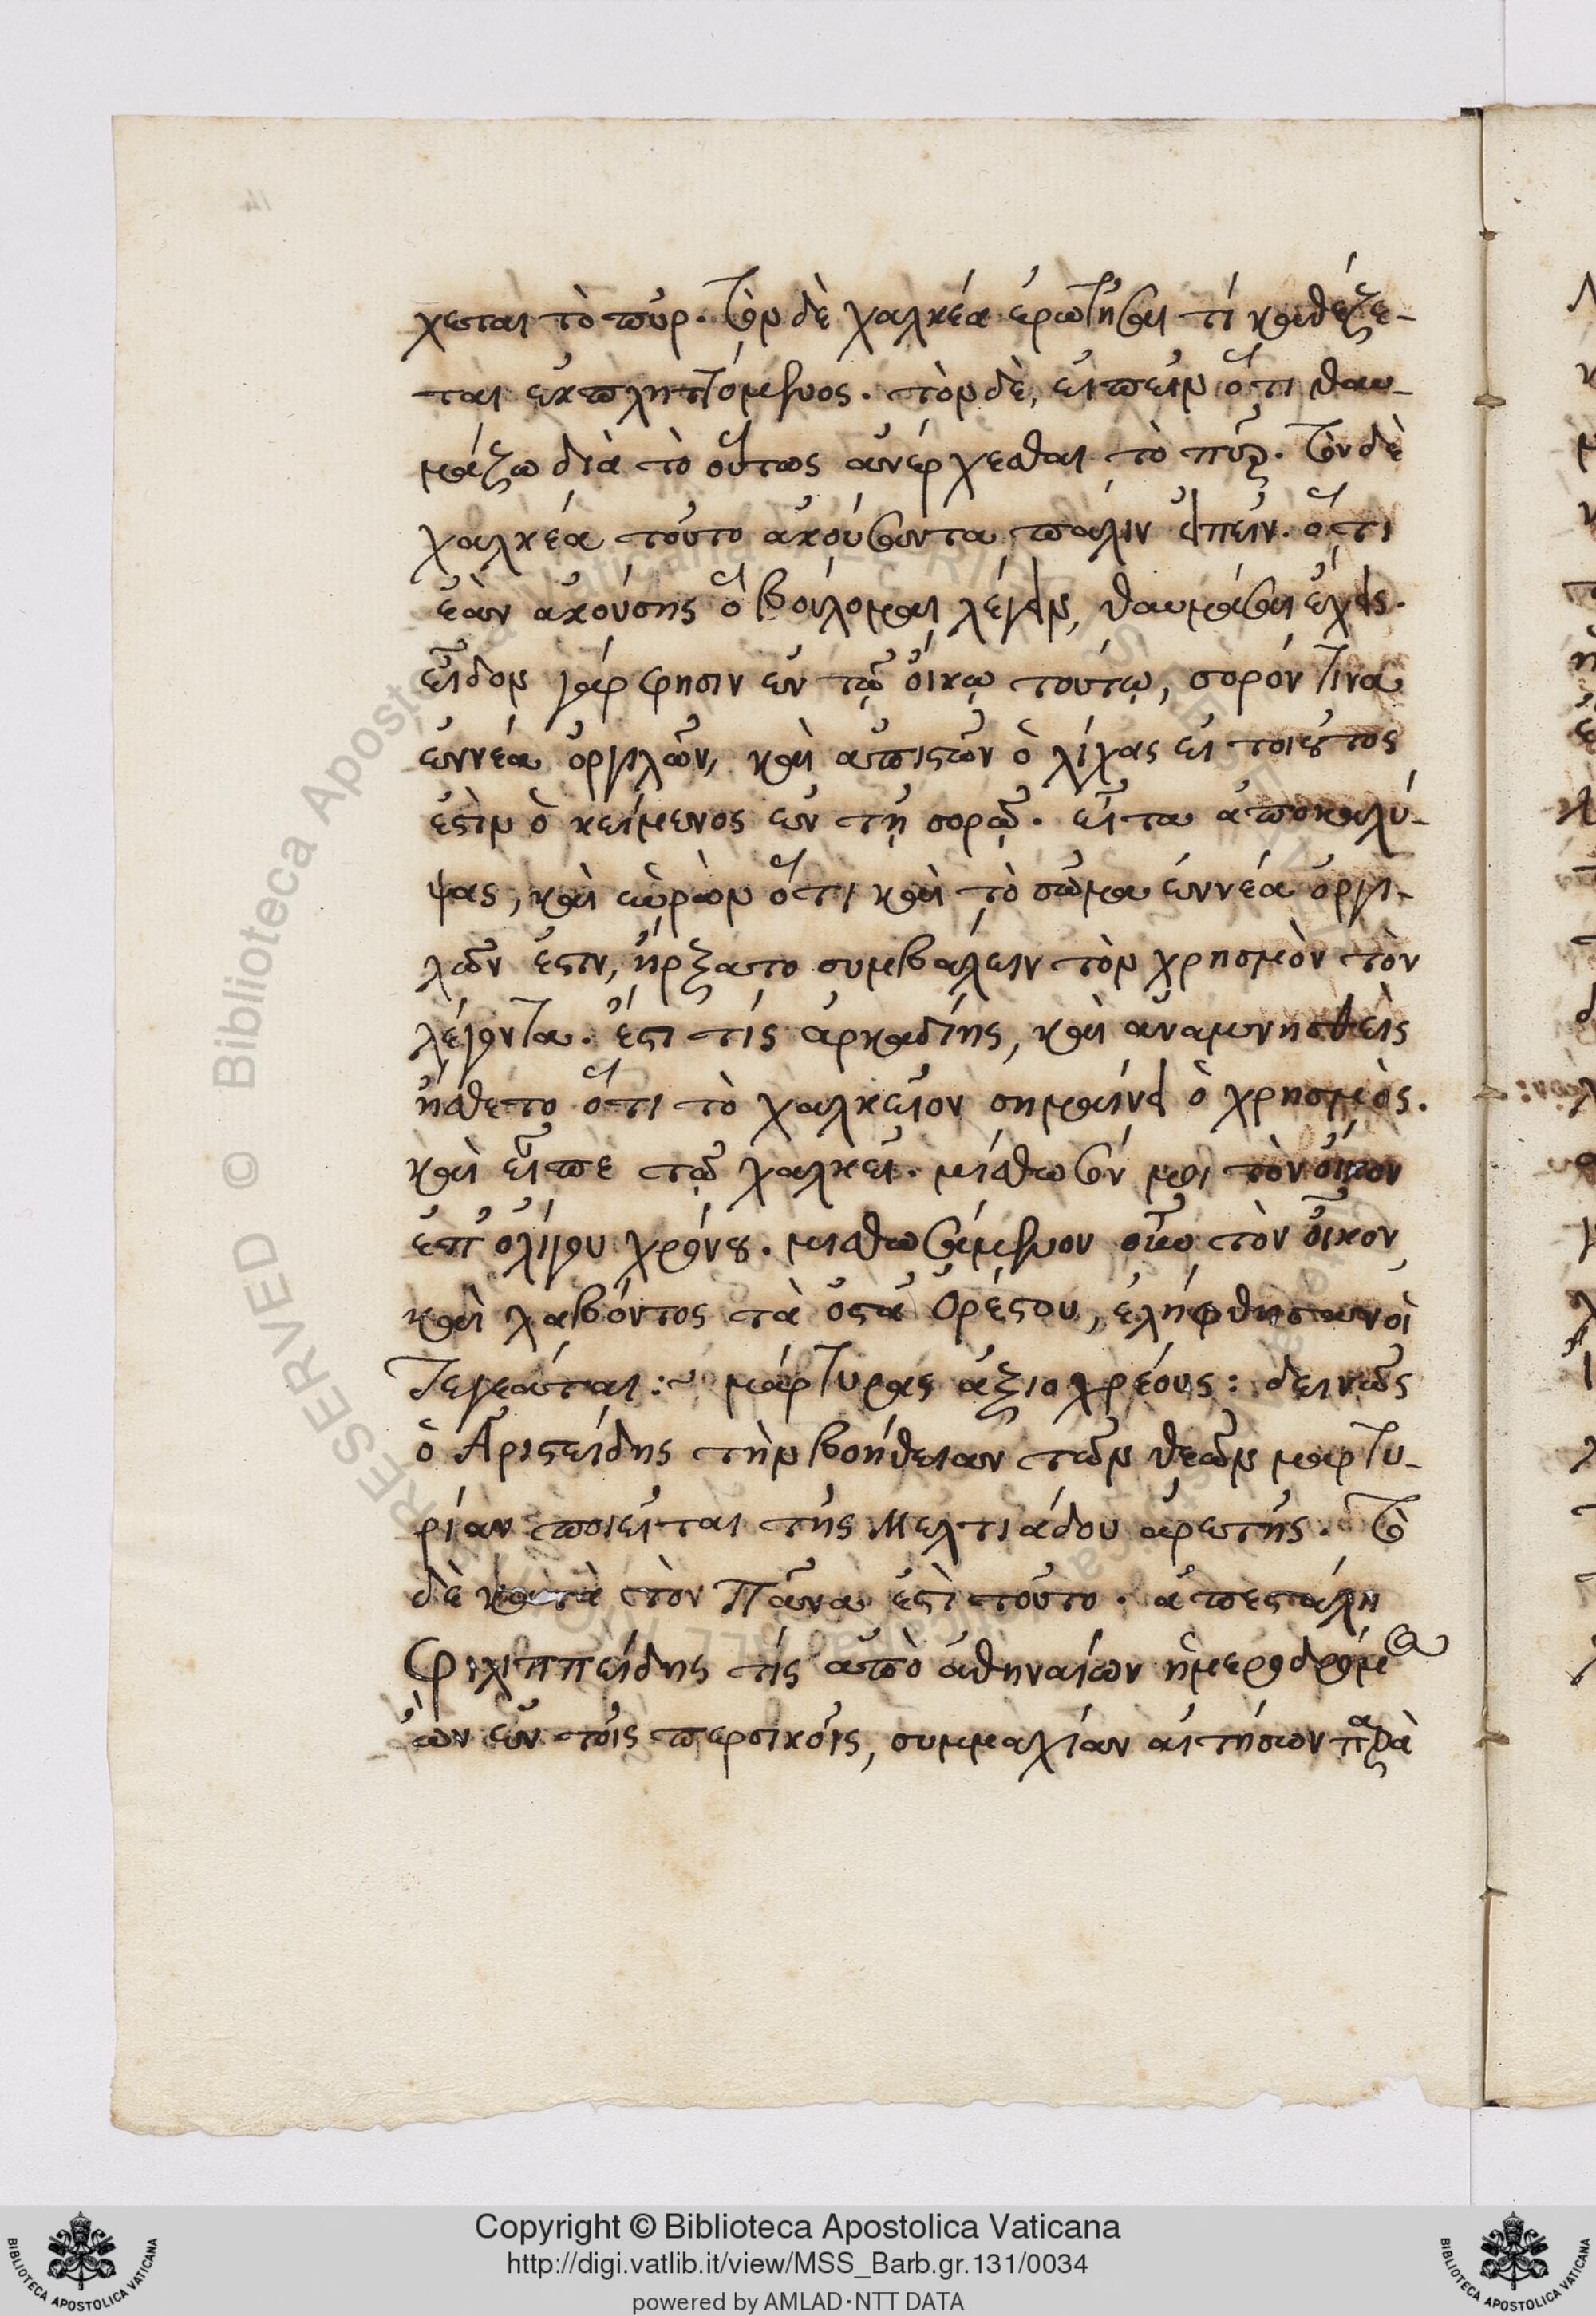 χεται τὸ πῦρ. τὸν δὲ χαλκέα ἐρωτῆσαι τί καθέζε-
ται ἐκπληττόμενος. τὸν δὲ, εἰπεῖν ὅτι θαυ-
μάζω διὰ τὸ οὕτως ἀνέρχεσθαι τὸ πῦρ. τὸν δὲ
χαλκέα τοῦτο ἀκούσαντα πάλιν εἰπεῖν. ὅτι
ἐὰν ἀκούσης ὃ βούλομαι λέγειν, θαυμάσαι ἔχεις.
εἶδον γάρ φησιν ἐν τῷ οἴκῳ τούτῳ, σορόν τινα
ἐννέα ὀργυλῶν, καὶ ἀπιστῶν ὁ λίχας εἰ τοιοῦτος
ἐστὶν ὁ κείμενος ἐν τῇ σορῷ. εἶτα ἀποκαλύ-
ψας, καὶ εὑρὼν ὅτι καὶ τὸ σῶμα ἐννέα ὀργυ-
λῶν ἐστιν, ἤρξατο συμβάλειν τὸν χρησμὸν τὸν
λέγοντα. ἔστι τίς ἀρκαδίης, καὶ ἀναμνησθεὶς
ἤσθετο ὅτι τὸ χαλκεῖον σημαίνει ὁ χρησμὸς.
καὶ εἶπε τῷ χαλκεῖ. μίσθωσόν μοι τὸν οἶκον
ἐπ' ὀλίγου χρόνου. μισθωσάμενον οὖν τὸν οἶκον
καὶ λαβόντος τὰ ὀστᾶ Ὀρέστου, ἐλήφθησαν οἱ
Τεγεάται :~ μάρτυρας ἀξιοχρέους: δεινῶς
ὁ Ἀριστείδης τὴν βοήθειαν τῶν θεῶν μαρτυ-
ρίαν ποιεῖται τῆς Μελτιάδου ἀρετῆς. τὸ
δὲ κατὰ τὸν Πᾶνα ἐστὶ τοῦτο. ἀπεστάλη
Φιλιππείδης τίς ἀπὸ ἀθηναίων ἡμεροδρόμος
ὢν ἐν τοῖς περσικοῖς, συμμαχίαν αἰτήσων παρὰ
Copyright © Biblioteca Apostolica Vaticana
http://digi.vatlib.it/view/MSS_Barb.gr.131/0034
powered by AMLAD·NTT DATA